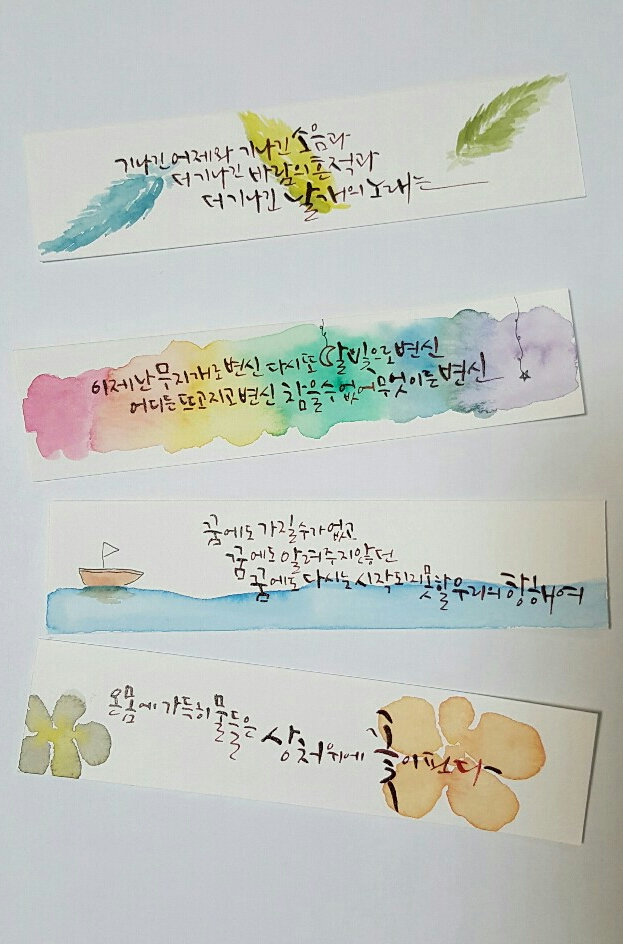 기나긴 어제와 기나긴 소음과
더 기나긴 바람의 흔적과
더 기나긴 날개의 노래는
이제 난 무지개로 변신 다시 또 달빛으로 변신
어디든 뜨고 지고 변신 참을 수 없어 무엇이든 변신
꿈에도 가질 수가 없고
꿈에도 알려주지 않던
꿈에도 다시는 시작되지 못할 우리의 항해여
온몸에 가득히 물들은 상처 위에 꽃이 핀다